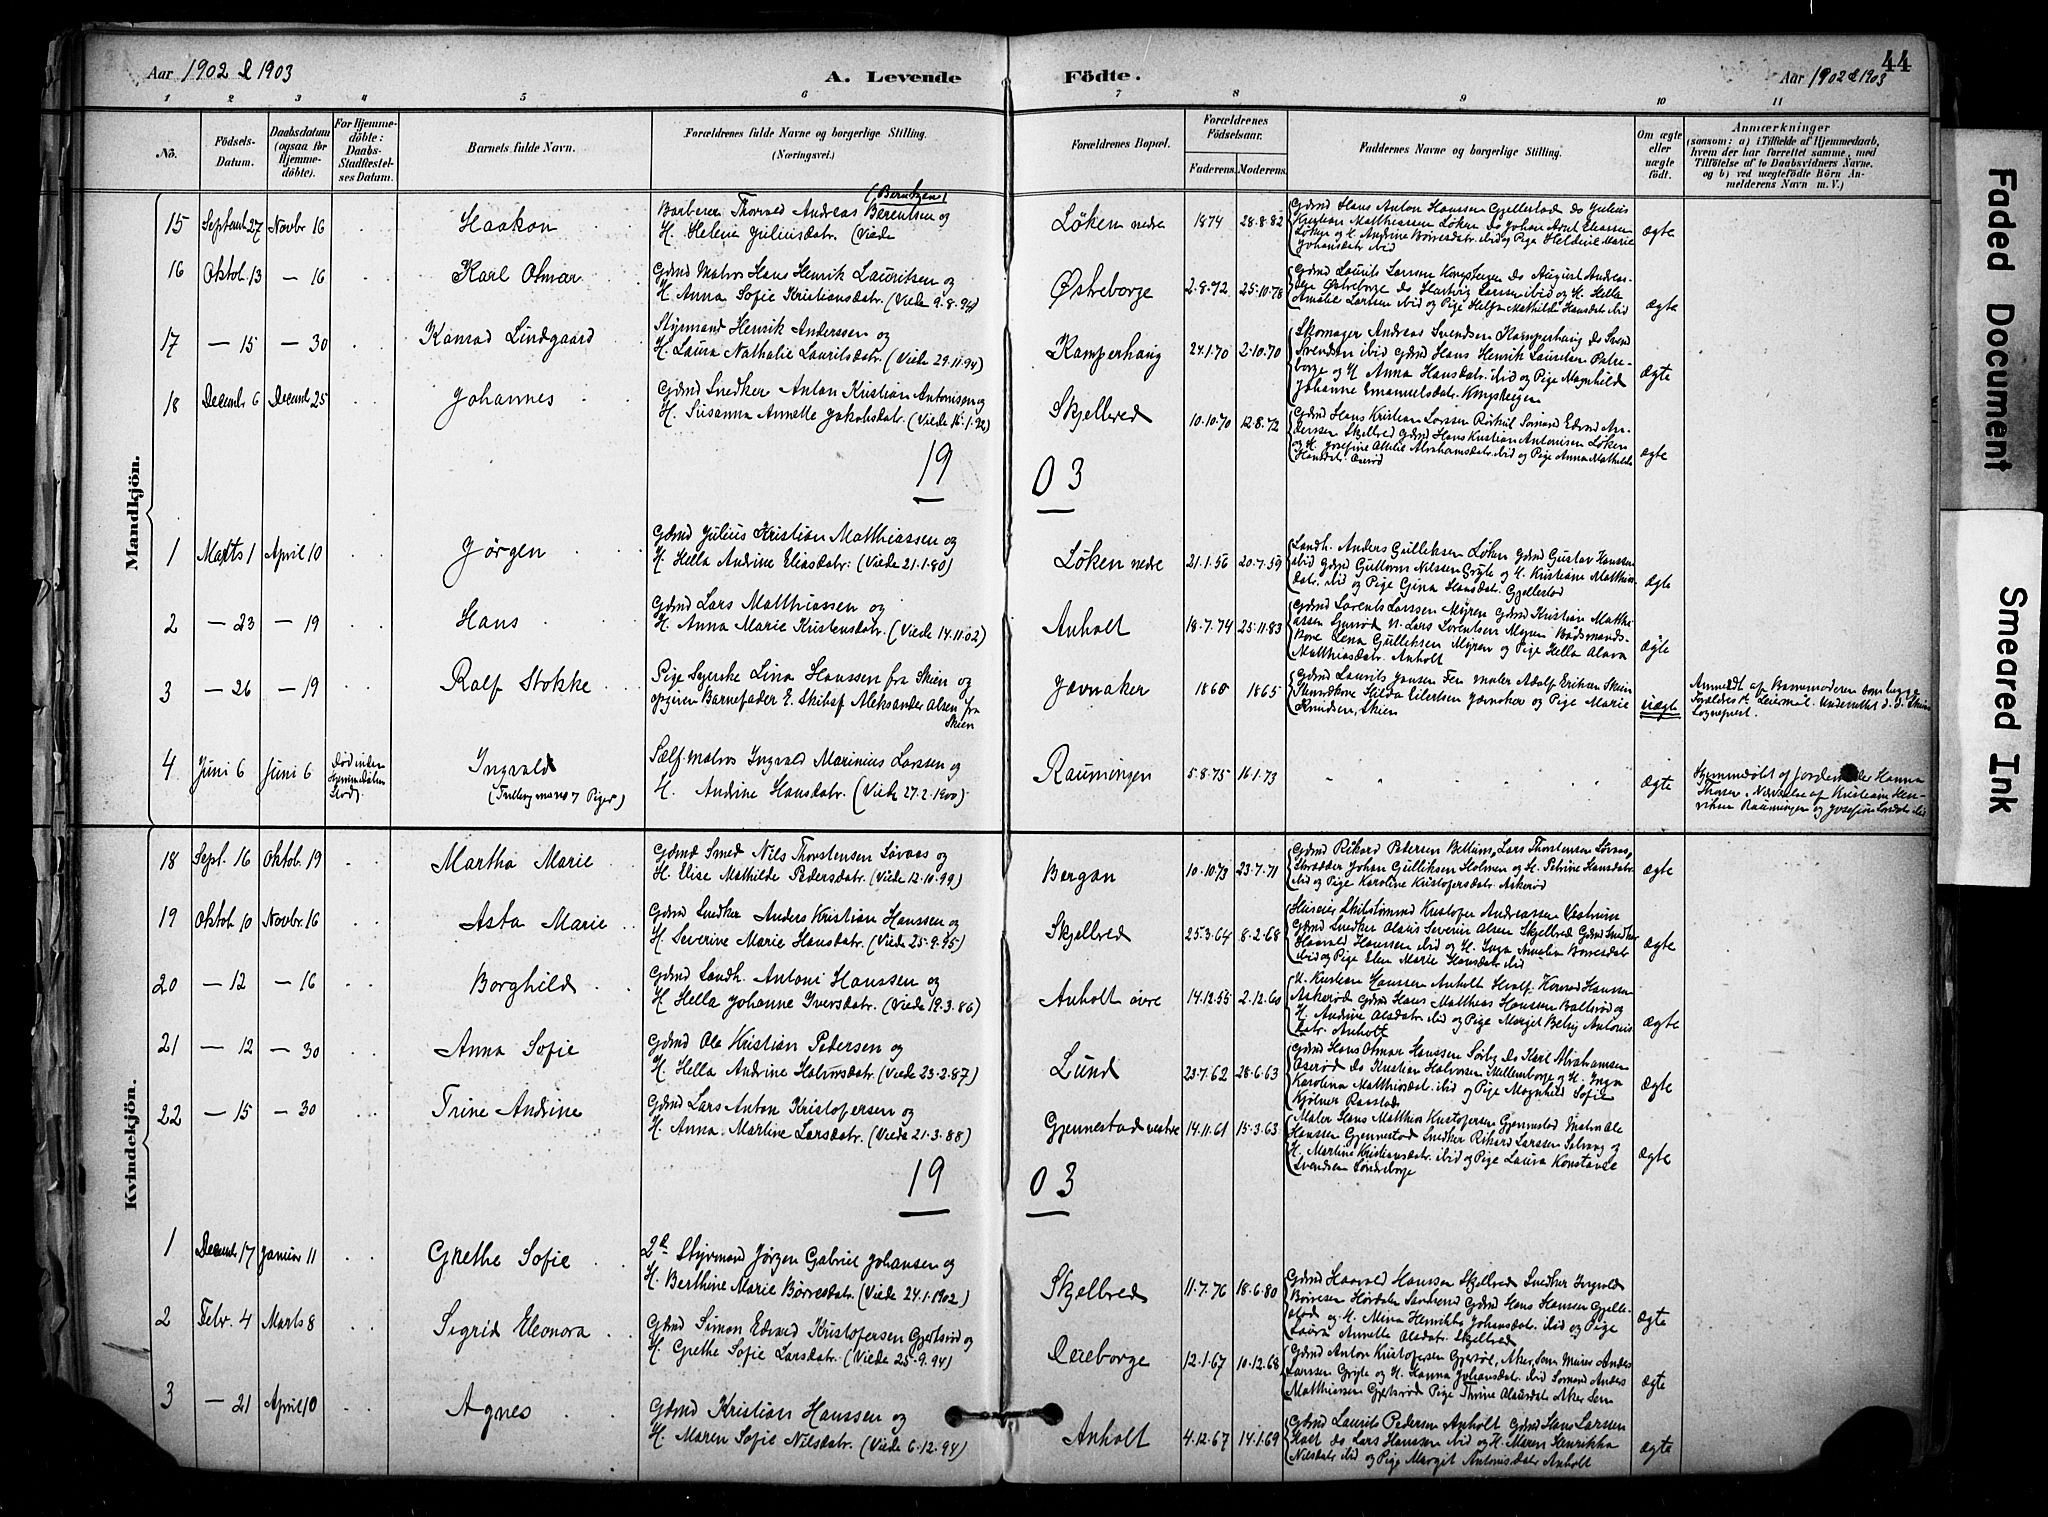 Aar 1902 & 1903
A. Levende
Födte.
Aar 1902 & 1903
44
1 2 3 4 5 6 7 8 9 10 11
No.
Födsels-
Datum.
Daabsdatum
(ogsaa for
Hjemme-
döbte).
For Hjemme-
döbte:
Daabs-
Stadfæstel-
ses Datum.
Barnets fulde Navn.
Forældrenes fulde Navne og borgerlige Stilling.
(Næringsvei.)
Forældrenes Bopæl.
Forældrenes
Födselsaar.
Faderens. Moderens.
Faddernes Navne og borgerlige Stilling.
Om ægte
eller
uægte
födt.
Anmærkninger
(saasom: a) i Tilfælde af Hjemmedaab,
hvem der har forrettet samme, med
Tilföielse af to Daabsvidners Navne.
og b) ved uægtefödte Börn An-
melderens Navn m. V.)
Mandkjön.
(Berntzen)
15 Septemb 27 Novbr 16 Haakon
Barberer Thorvald Andreas Berentsen og
H. Helene Juliusdatr. (Viede
Løken nedre 1874 28.8.82
Gdmd Hans Anton Hanssen Gjellestad do Julius
Kristian Matthiassen Løken do Johan Eliassen
Løken og H. Andrine ibid og Pige Marie
Johansdatr ibid
ægte
16 Oktob. 13 — 16 Karl Otmar
Gdmd Matros Hans Henrik Lauritsen og
H. Anna Sofie Kristiansdatr. (Viede 9.8.94)
Østreborge 2.8.72 25.10.76
Gdmd Laurits Larssen Kongsteigen do August Andreas-
sen Østreborge do Hartvig Larssen ibid og H. Hella
Amalie Larssen ibid og Pige Helga Mathilde Hansdatr ibid
ægte
17 — 15 — 30 Konrad Lindgaard
Styrmand Henrik Anderssen og
H. Laura Nathalie Lauritsdatr. (Viede 29.11.94)
Kamperhaug 24.1.70 2.10.70
Skomager Andreas Svendsen Kamperhaug do Svend
Svendsen ibid Gdmd Hans Henrik Lauritsen
borge og H Anna Hansdatr. ibid og Pige Magnhild
Johanne Emanuelsdatr. Kongsteigen
ægte
18 Decemb 6 Decemb 25 Johannes
Gdmd Snedker Anton Kristian Antonisen og
H. Susanna Annette Jakobsdatr. (Viede 15.1.92)
Skjellved 10.10.70 12.8.72
Gdmd Hans Kristian Larssen Sømand Edvard An-
derssen Skjellved Gdmd Hans Kristian Antonisen Løken
og H. Josefine Otilie Abrahamsdatr. ibid og Pige Anna Mathilde
Hansdatr. Oserød
ægte
19 03
1 Marts 1 April 10 Jørgen
Gdmd Julius Kristian Matthiassen og
H. Hella Andrine Eliasdatr: (Viede 21.1.80)
Løken nedre 21.1.56 20.7.59
Landh. Anders Gulliksen Løken Gdmd Gustav Hanssen
ibid Gdmd Guttorm Nilssen Gryte og H. Kristiane Matthias-
datr. ibid og Pige Gina Hansdatr. Gjellestad
ægte
2 — 23 — 19 Hans
Gdmd Lars Matthiassen og
H. Anna Marie Kristensdatr. (Viede 14.11.02)
Anholt 18.7.74 25.11.83
Gdmd Lorents Larssen Myren Gdmd Kristian Matthi-
assen U. Lars Lorentsen Myren Baadsmands-
kone Lena Gulliksen Myren og Pige Hella Olava
Matthiasdatr. Anholt
ægte
3 — 26 — 19 Ralf Stokke
Pige Syerske Lina Hanssen fra Skien og
opgiven Barnefader E. Skibsf Aleksander Olsen fra
Skien
Jævnaker 1860 1865
Gdmd Laurits Jansen Fen Maler Adolf Eriksen Skien
Hilda Eilertsen Jævnaker og Pige Marie
Knudsen, Skien
uægte
Anmeldt af Barnemoderen som begge
Forældres 1ste Leiermaal. Underrettet d. d. Skiens
Sogneprest.
4 Juni 6 Juni 6
Død inden
Hjemmedaaben
Stadf.
Ingvald
(Trilling mens 7 Piger)
Sælf. matros Ingvald Marinius Larssen og
H. Andrine Hansdatr. (Viede 27.2.1900)
Raumingen 5.8.75 16.1.73
" " " "
ægte
Hjemmedøbt af Jordemoder Hanna
Thorsen. Nærværelse af Kristiane Hen-
riksen Raumingen og Josefine Larsdatr ibid
Kvindekjön.
18 Sept. 16 Oktob. 19 Martha Marie
Gdmd Smed Nils Thorstensen Søraas og
H. Elise Mathilde Pedersdatr. (Viede 12.10.99)
Bergan 10.10.73 23.7.71
Gdmd Rikard Pedersen Bettum, Lars Thorstensen Søraas,
Skrædder Johan Gulliksen Holmen og H. Petrine Hansdatr.
ibid og Pige Karoline Kristofersdatr. Askerød
ægte
19 Oktob 10 Novbr. 16 Asta Marie
Gdmd Snedker Anders Kristian Hanssen og
H. Severine Marie Hansdatr. (Viede 25.9.95)
Skjellved 25.3.64 8.2.68
Huseier Skibstømmd Kristofer Andreassen Vestrum
Gdmd Snedker Olaus Severin Olsen Skjellved Gdmd Snedker
Haavald Hanssen ibid og H. Inga Amalia Borresdatr
ibid og Pige Elen Marie Hansdatr. ibid
ægte
20 — 12 — 16 Borghild
Gdmd Landh. Antoni Hanssen og
H. Hella Johanne Iversdatr. (Viede 19.3.86)
Anholt øvre 14.12.55 2.12.60
U. Kristian Hanssen Anholt Hvalf. Konrad Hanssen
Askerød Gdmd Hans Matthias Hanssen Baltserød og
H. Andrine Olsdatr. ibid og Pige Margit Betzy Antonis-
datr. Anholt
ægte
21 — 12 — 30 Anna Sofie
Gdmd Ole Kristian Pedersen og
H. Hella Andrine Halvorsdatr. (Viede 23.2.87)
Lund 23.7.62 28.6.63
Gdmd Hans Otmar Hanssen Sørby do Karl Abrahamsen
Oserød do Kristian Halvorsen Skellemborge og H. Inga
Karolina Matthiasdatr. ibid og Pige Magnhild Sofie
Kjølner Rastad
ægte
22 — 15 — 30 Trine Andrine
Gdmd Lars Anton Kristofersen og
H. Anna Martine Larsdatr. (Viede 21.3.88)
Gjennestad vestre 14.11.61 15.3.63
Maler Hans Matthias Kristofersen Gjennestad Matros Ole
Hanssen Gjennestad Snedker Rikard Larssen Solvang og
H. Martine Kristiansdatr. ibid og Pige Laura Konstanse
Svendsen Søndreborge
ægte
19 03
1 Decemb. 17 Januar 11 Grethe Sofie
2de Styrmand Jørgen Gabriel Johansen og
H. Berthine Marie Børresdatr. (Viede 24.1.1902)
Skjellved 11.7.76 18.6.80
Gdmd Haavald Hanssen Skjellved Snedker Ingvald
Børresen Hørdalen Sandherred Gdmd Hans Hanssen Gjelle-
stad og H. Mina Henrikke Johansdatr. ibid og Pige
Laura Annette Olsdatr. Skjellved
ægte
2 Febr. 4 Marts 8 Sigrid Eleonora
Gdmd Simon Edvard Kristofersen Gjertsrød og
H. Grethe Sofie Larsdatr. (Viede 25.9.94)
12.1.67 10.12.68
Gdmd Anton Kristofersen Aker, Sem Murer Anders
Larssen Gryte og H. Hanna Johansdatr. ibid Sømand Anders
Matthiassen Gjertsrød Pige Thrine Olausdatr. Aker Sem
ægte
3 — 21 April 10 Agnes
Gdmd Kristian Hanssen og
H. Maren Sofie Nilsdatr. (Viede 6.12.94)
Anholt 4.12.67 14.1.69
Gdmd Laurits Pedersen Anholt Gdmd Hans Larssen
do Lars Hanssen ibid og H. Maren Henrikka
Nilsdatr ibid og Pige Margit Antonisdatr Anholt
ægte
Faded Document
Smeared Ink